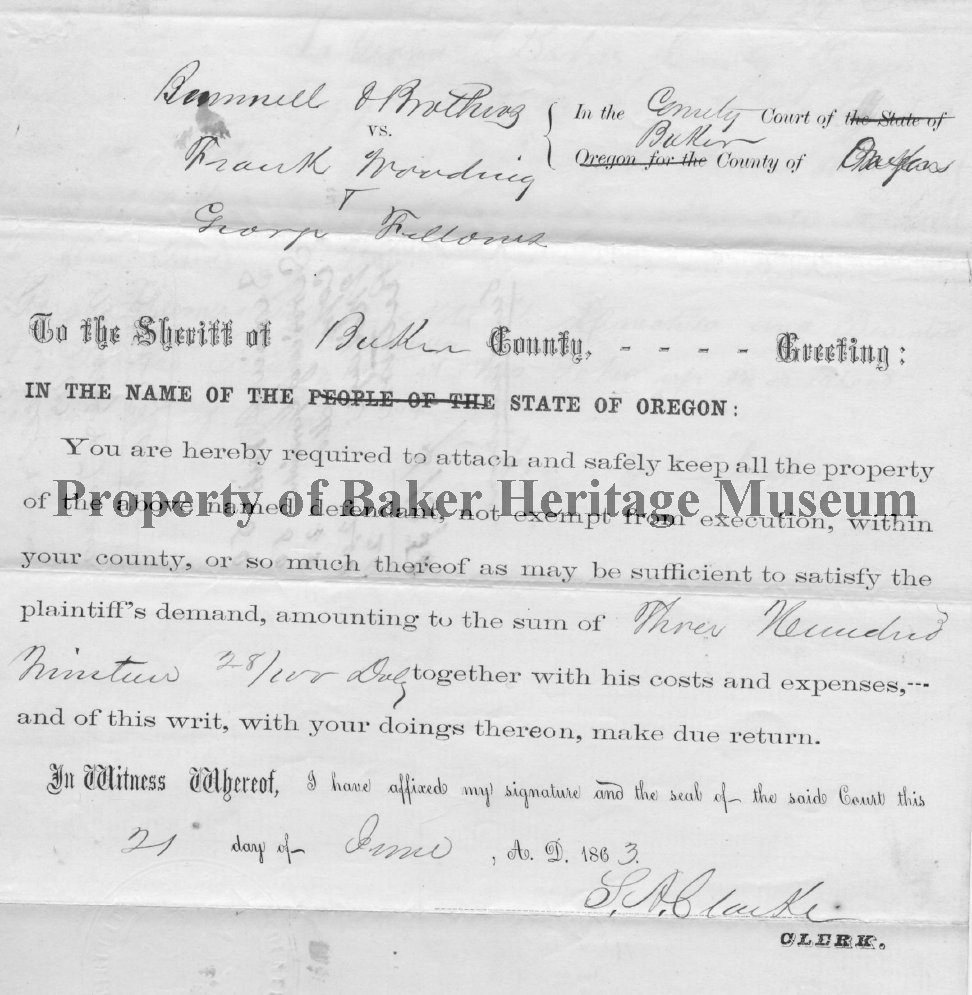 Brunnell & Brothers
vs.
Frank Wooding
&
George Fellows
In the County Court of the State of
Baker
Oregon for the County of Oregon
To the Sheriff of Baker County, - - - - Greeting:
IN THE NAME OF THE PEOPLE OF THE STATE OF OREGON:
You are hereby required to attach and safely keep all the property
of the above named defendant, not exempt from execution, within
Property of Baker Heritage Museum
your county, or so much thereof as may be sufficient to satisfy the
plaintiff's demand, amounting to the sum of Three Hundred
Nineteen 28/100 Dols together with his costs and expenses,---
and of this writ, with your doings thereon, make due return.
In Witness Whereof, I have affixed my signature and the seal of the said Court this
21 day of June, A. D. 1863.
S. A. Clarke
CLERK.